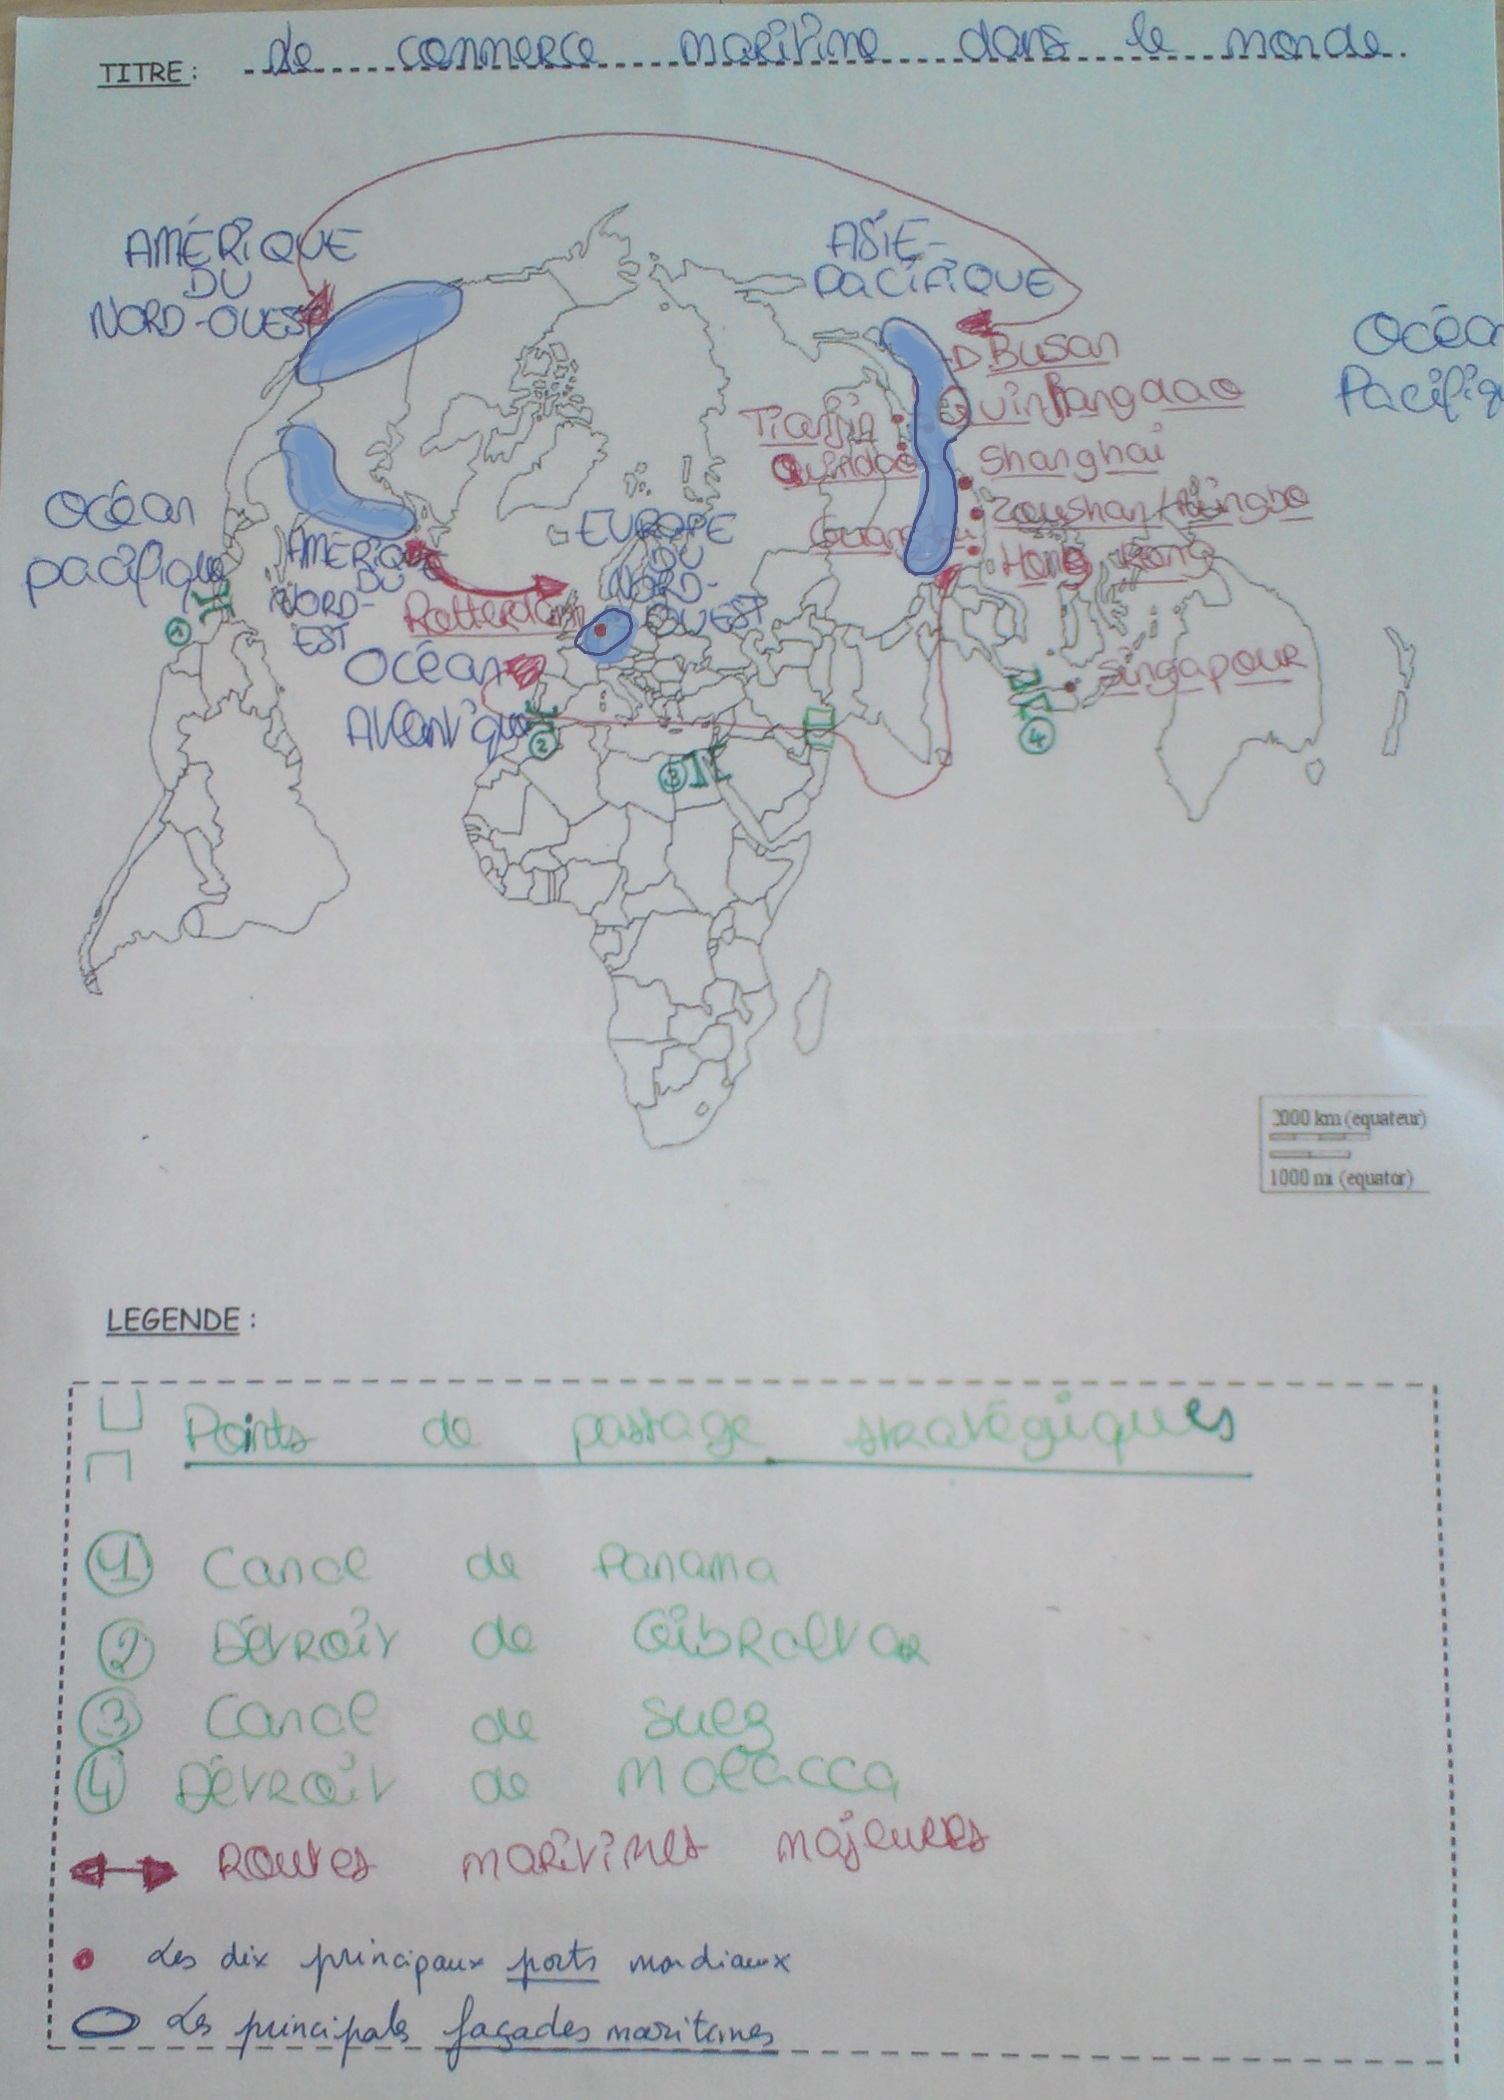 TITRE : Le commerce maritime dans le monde.
AMÉRIQUE
DU
NORD-OUEST
ASIE-
PACIFIQUE
Océa
Pacifiq
Busan
Quinhangdao
Tianjin
Shanghai
Quindao
Zoushan/Ningbo
Guangzhou
Hong Kong
Océan
pacifique
AMÉRIQUE
DU
NORD-
EST
EUROPE
DU
NORD-
OUEST
Rotterdam
Océan
Atlantique
Singapour
1
2
3
4
2000 km (equateur)
1000 mi (equator)
LEGENDE :
Points de passage stratégiques
1 Canal de Panama
2 Détroit de Gibraltar
3 Canal de Suez
4 Détroit de Malacca
Routes maritimes majeures
Les dix principaux ports mondiaux
Les principales façades maritimes